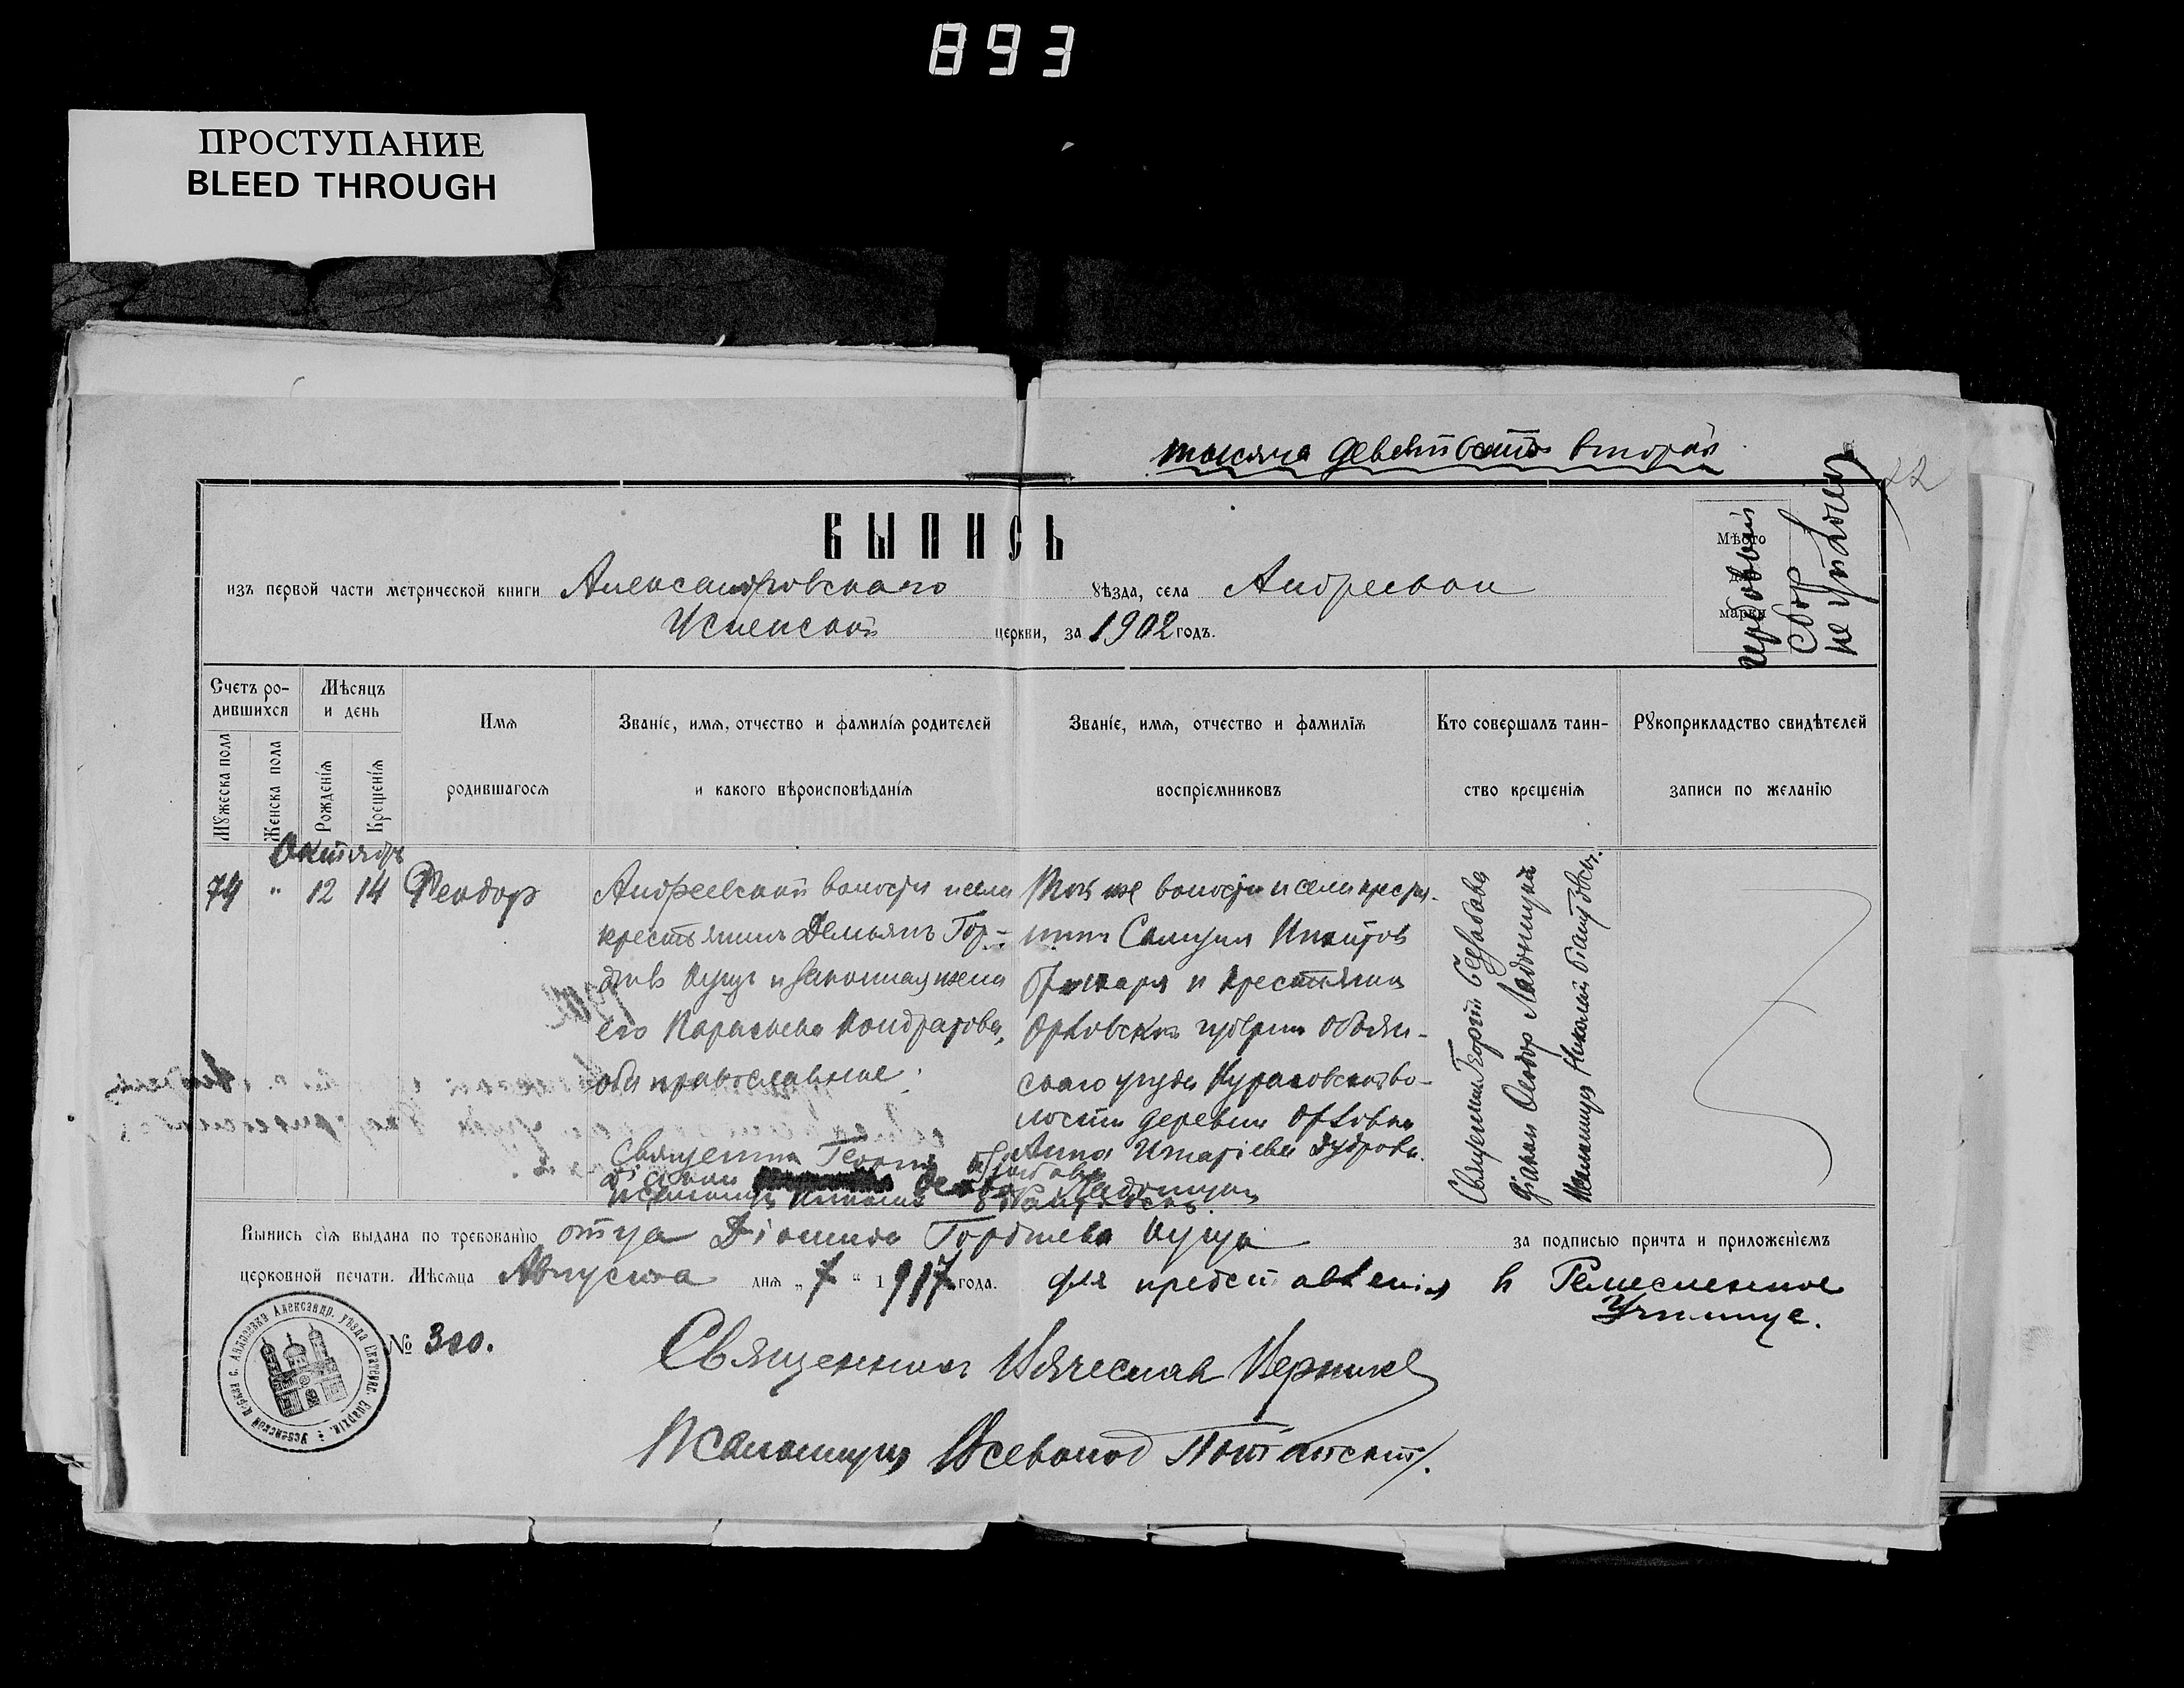 893
ПРОСТУПАНИЕ
BLEED THROUGH
тысяча девятьсотъ второй
22
ВЫПИСЬ
изъ первой части метрической книги Александровскаго уѣзда, села Андреевки
Успенской церкви, за 1902 годъ.
Мѣсто
марки
Гербовый
сборъ
не уплоченъ
Счетъ ро-
дившихся
Мѣсяцъ
и день
Мужеска пола
Женска пола
Рожденія
Крещенія
Имя
родившагося
Званіе, имя, отчество и фамилія родителей
и какого вѣроисповѣданія
Званіе, имя, отчество и фамилія
воспріемниковъ
Кто совершалъ таин-
ство крещенія
Рукоприкладство свидѣтелей
записи по желанію
Октябрь
74 " 12 14 Феодор
Андреевской волости и села
крестьянинъ Демьянъ Гор-
Куцъ и законная жена
его Параскева Кондратова,
оба православные.
Священник Георгій
Діакон Ладожицкій
Псаломщик Николай
Той же волости и села крестья-
нин Самуил
и крестьянка
Орловской губерніи
скаго уѣзда во-
лости деревни
Анна
Священник Георгій
Діакон Феодор Ладожицкій
Псаломщик Николай
Выпись сія выдана по требованію отца Діомида Гордіева Куца за подписью причта и приложеніемъ
церковной печати. Мѣсяца Августа дня „7“ 1917 года. для представленія в Ремесленное
Училище.
№ 300.
Успенской церкви с. Андреевки Александр. уѣзда Екатерин. Епархіи.
Священник Вячеслав
Псаломщик Всеволод